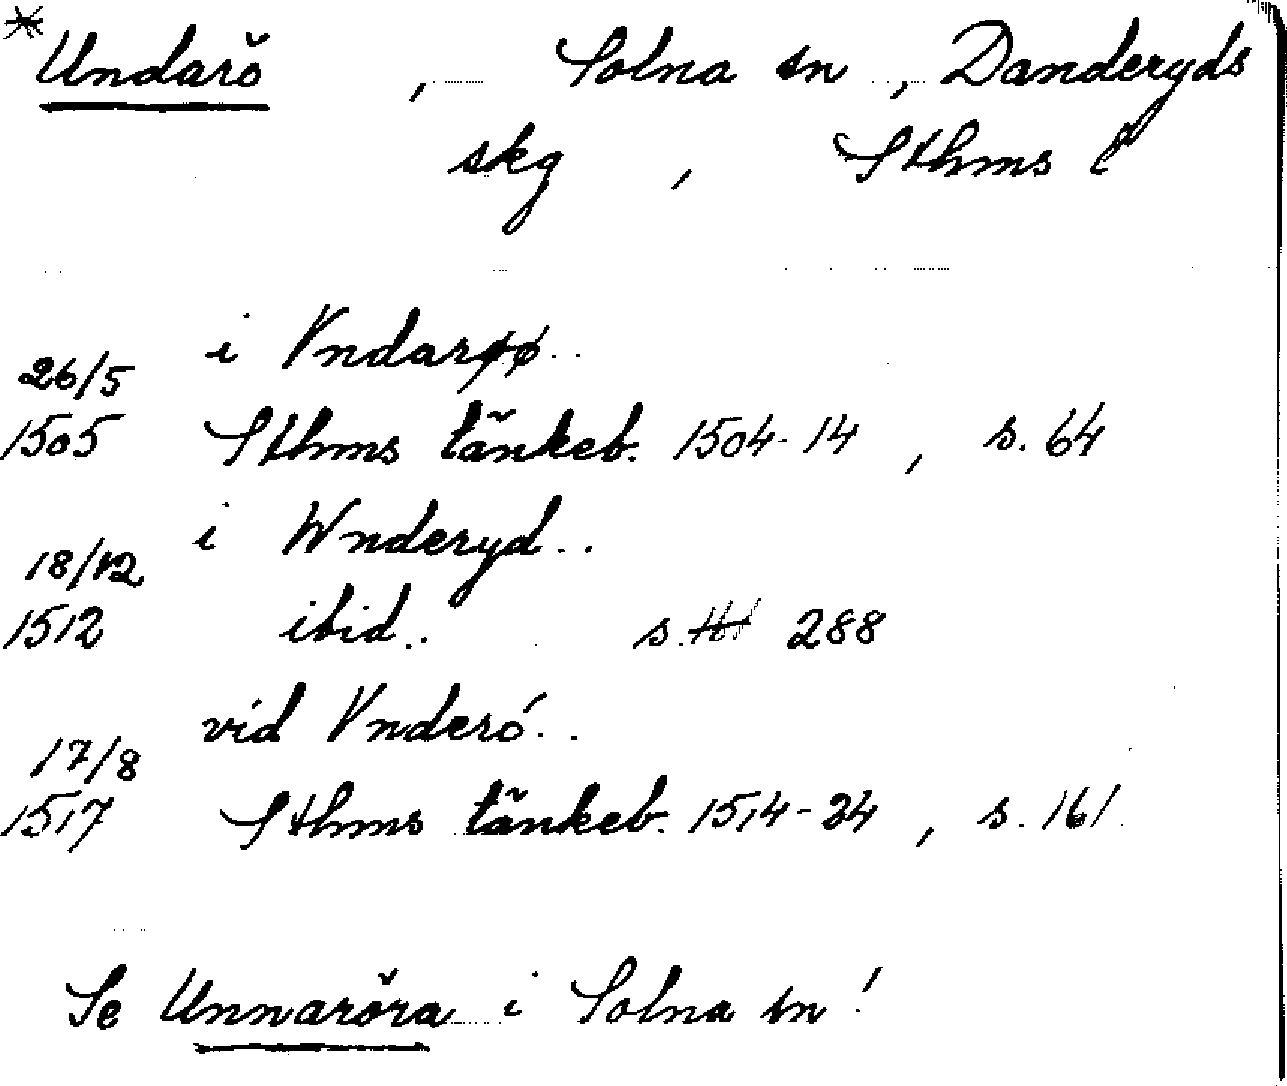 * Undarö , Solna sn , Danderyds
skg , Sthms l
i Vndarøø
26/5
1505 Sthms tänkeb. 1504-14 , s. 64
i Wnderyd
18/12
1512 ibid. s. 288
vid Vnderó
17/8
1517 Sthms tänkeb. 1514-24 , s. 161
Se Unnaröra i Solna sn !